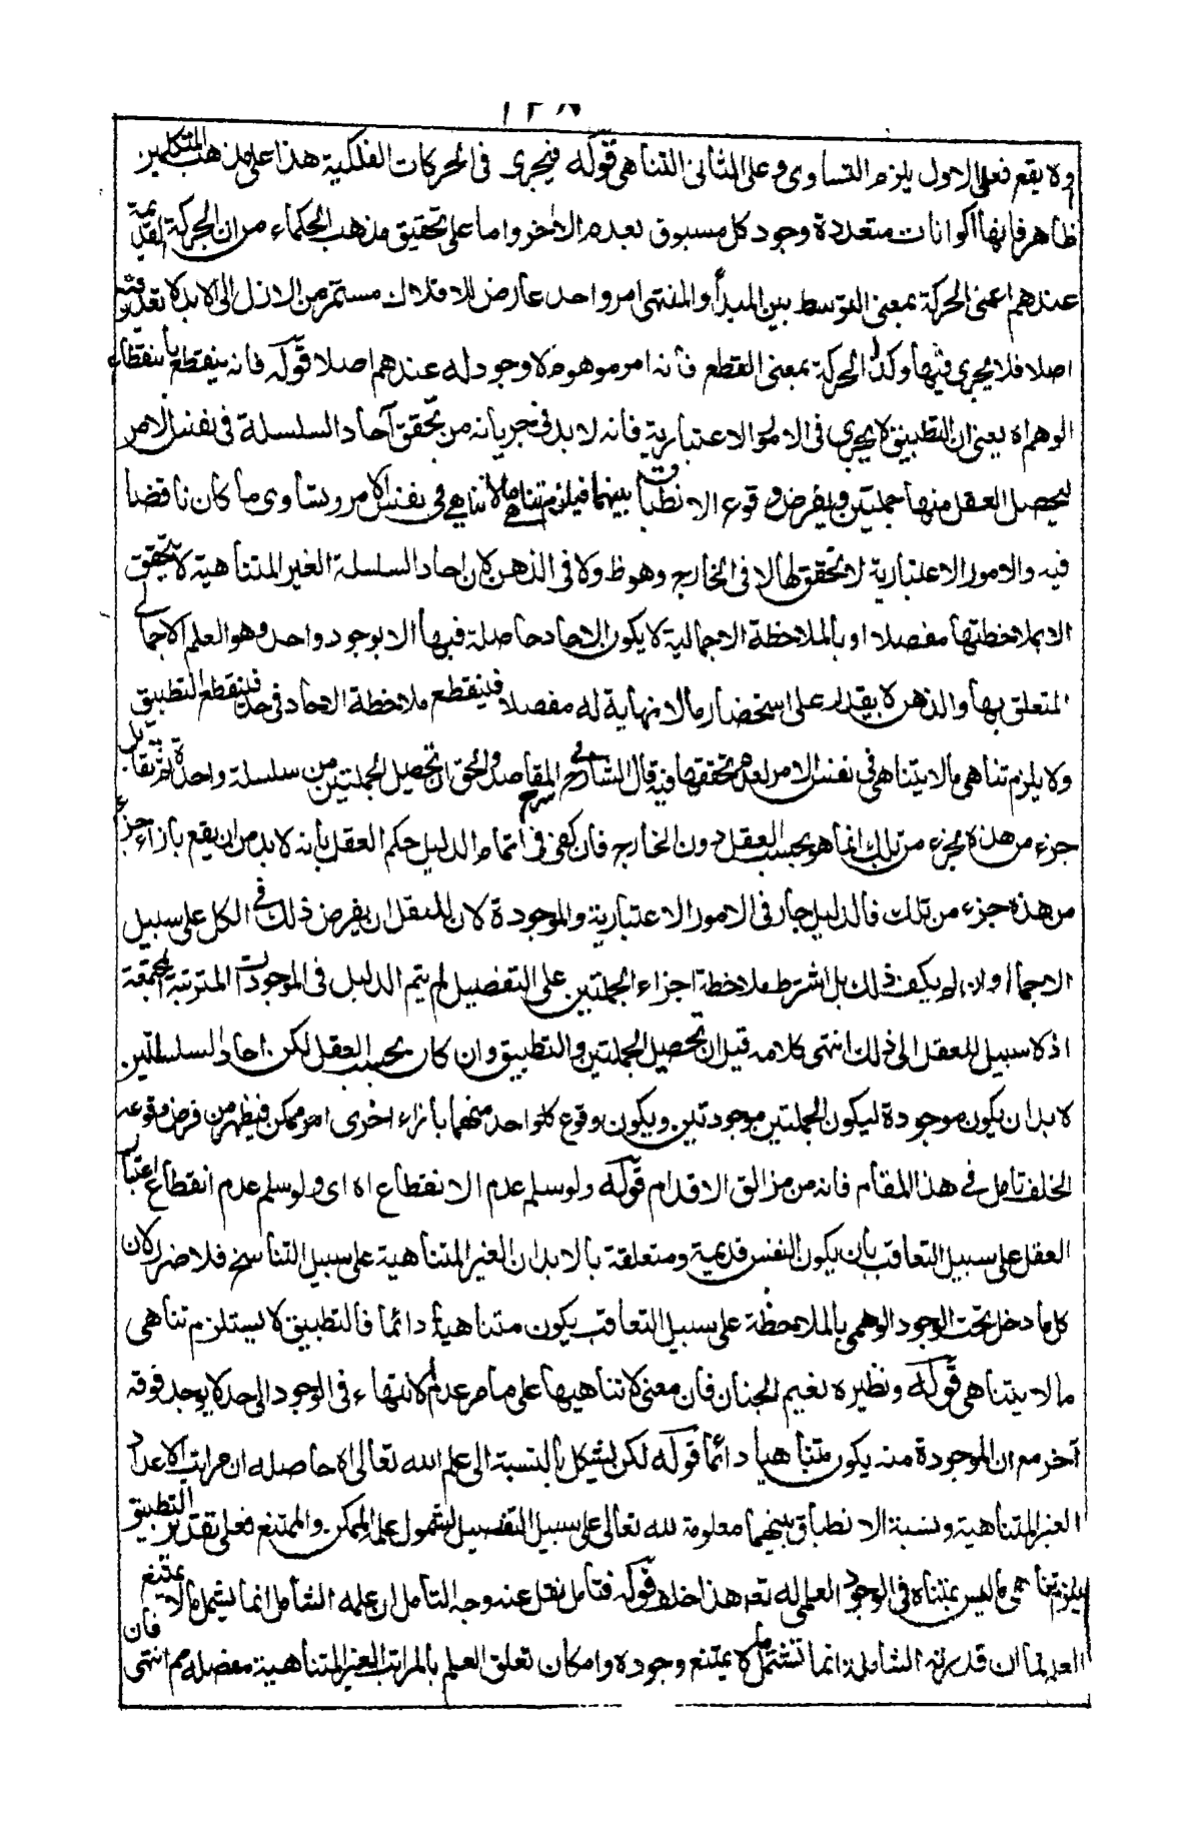 ١٢٨
ولا يقع فعلى الاول يلزم التساوى وعلى الثانى التناهى قوله فيجرى فى الحركات الفلكية هذا على مذهب المتكلمين
ظاهر فانها اكوانات متعددة وجود كل مسبوق بعدم الاخر واما على تحقيق مذهب الحكماء من ان الحركة القديمة
عندهم اعنى الحركة بمعنى التوسط بين المبدأ والمنتهى امر واحد عارض للافلاك مستمر من الازل الى الابد لا تعدد فيه
اصلا فلا يجرى فيها وكذا الحركة بمعنى القطع فانه امر موهوم لا وجود له عندهم اصلا قوله فانه ينقطع بانقطاع
الوهم اه يعنى ان التطبيق لا يجرى فى الامور الاعتبارية فانه لا بد فى جريانه من تحقق آحاد السلسلة فى نفس الامر
ليحصل العقل منها جملتين ويفرض وقوع الانطباق بينهما فيلزم تناهى ما لا تناهى فى نفس الامر وتساوى ما كان ناقصا
فيه والامور الاعتبارية لا تحقق لها لا فى الخارج وهو ظ ولا فى الذهن لان احاد السلسلة الغير المتناهية لا يتحقق
الا بملاحظتها مفصلا او بالملاحظة الاجمالية لا يكون الاحاد حاصلة فيها الا بوجود واحد وهو العلم الاجمالى
المتعلق بها والذهن لا يقدر على استحضار ما لا نهاية له مفصلا فينقطع ملاحظة الاحاد فى حد فينقطع التطبيق
ولا يلزم تناهى ما لا يتناهى فى نفس الامر لعدم تحققها فيه قال الشارح فى شرح المقاصد والحق ان تحصيل الجملتين من سلسلة واحدة ثم مقابلة
جزء من هذه بجزء من تلك انما هو بحسب العقل دون الخارج فان كفى فى اتمام الدليل حكم العقل بانه لا بد من ان يقع بازاء جزء
من هذه جزء من تلك فالدليل جار فى الامور الاعتبارية والموجودة لان للعقل ان يفرض ذلك فى الكل على سبيل
الاجمال وان لم يكف ذلك بل اشترط ملاحظة اجزاء الجملتين على التفصيل لم يتم الدليل فى الموجودات المترتبة المجتمعة
اذ لا سبيل للعقل الى ذلك انتهى كلامه قيل ان تحصيل الجملتين والتطبيق وان كان بحسب العقل لكن احاد السلسلتين
لا بد ان يكون موجودة ليكون الجملتين موجودتين ويكون وقوع كل واحد منهما بازاء اخرى امر ممكن فيظهر من فرض وقوعه
الخلف تامل فى هذا المقام فانه من مزالق الاقدام قوله ولو سلم عدم الانقطاع اه اى ولو سلم عدم انقطاع اعتبار
العقل على سبيل التعاقب بان يكون النفس قديمة ومتعلقة بالابدان الغير المتناهية على سبيل التناسخ فلا ضر لان
كل ما دخل تحت الوجود الوهمى بالملاحظة على سبيل التعاقب يكون متناهيا دائما فالتطبيق لا يستلزم تناهى
ما لا يتناهى قوله ونظيره نعيم الجنان فان معنى لا تناهيها على ما مر عدم الانتهاء فى الوجود الى حد لا يوجد فوقه
آخر مع ان الموجودة منه يكون متناهيا دائما قوله لكن يشكل بالنسبة الى علم الله تعالى اه حاصله ان مراتب الاعداد
الغير المتناهية ونسبة الانطباق بينهما معلومة لله تعالى على سبيل التفصيل لشمول علمه الممكن والممتنع فعلى تقدير التطبيق
يلزم تناهى ما ليس بمتناه فى الوجود العلمى له تعه هذا خلف قوله فتامل نقل عنه وجه التامل ان علمه الشامل انما يشمل ما لا يمتنع
العلم كما ان قدرته الشاملة انما تشتمل ما لا يمتنع وجوده وامكان تعلق العلم بالمراتب الغير المتناهية مفصله مم انتهى فان